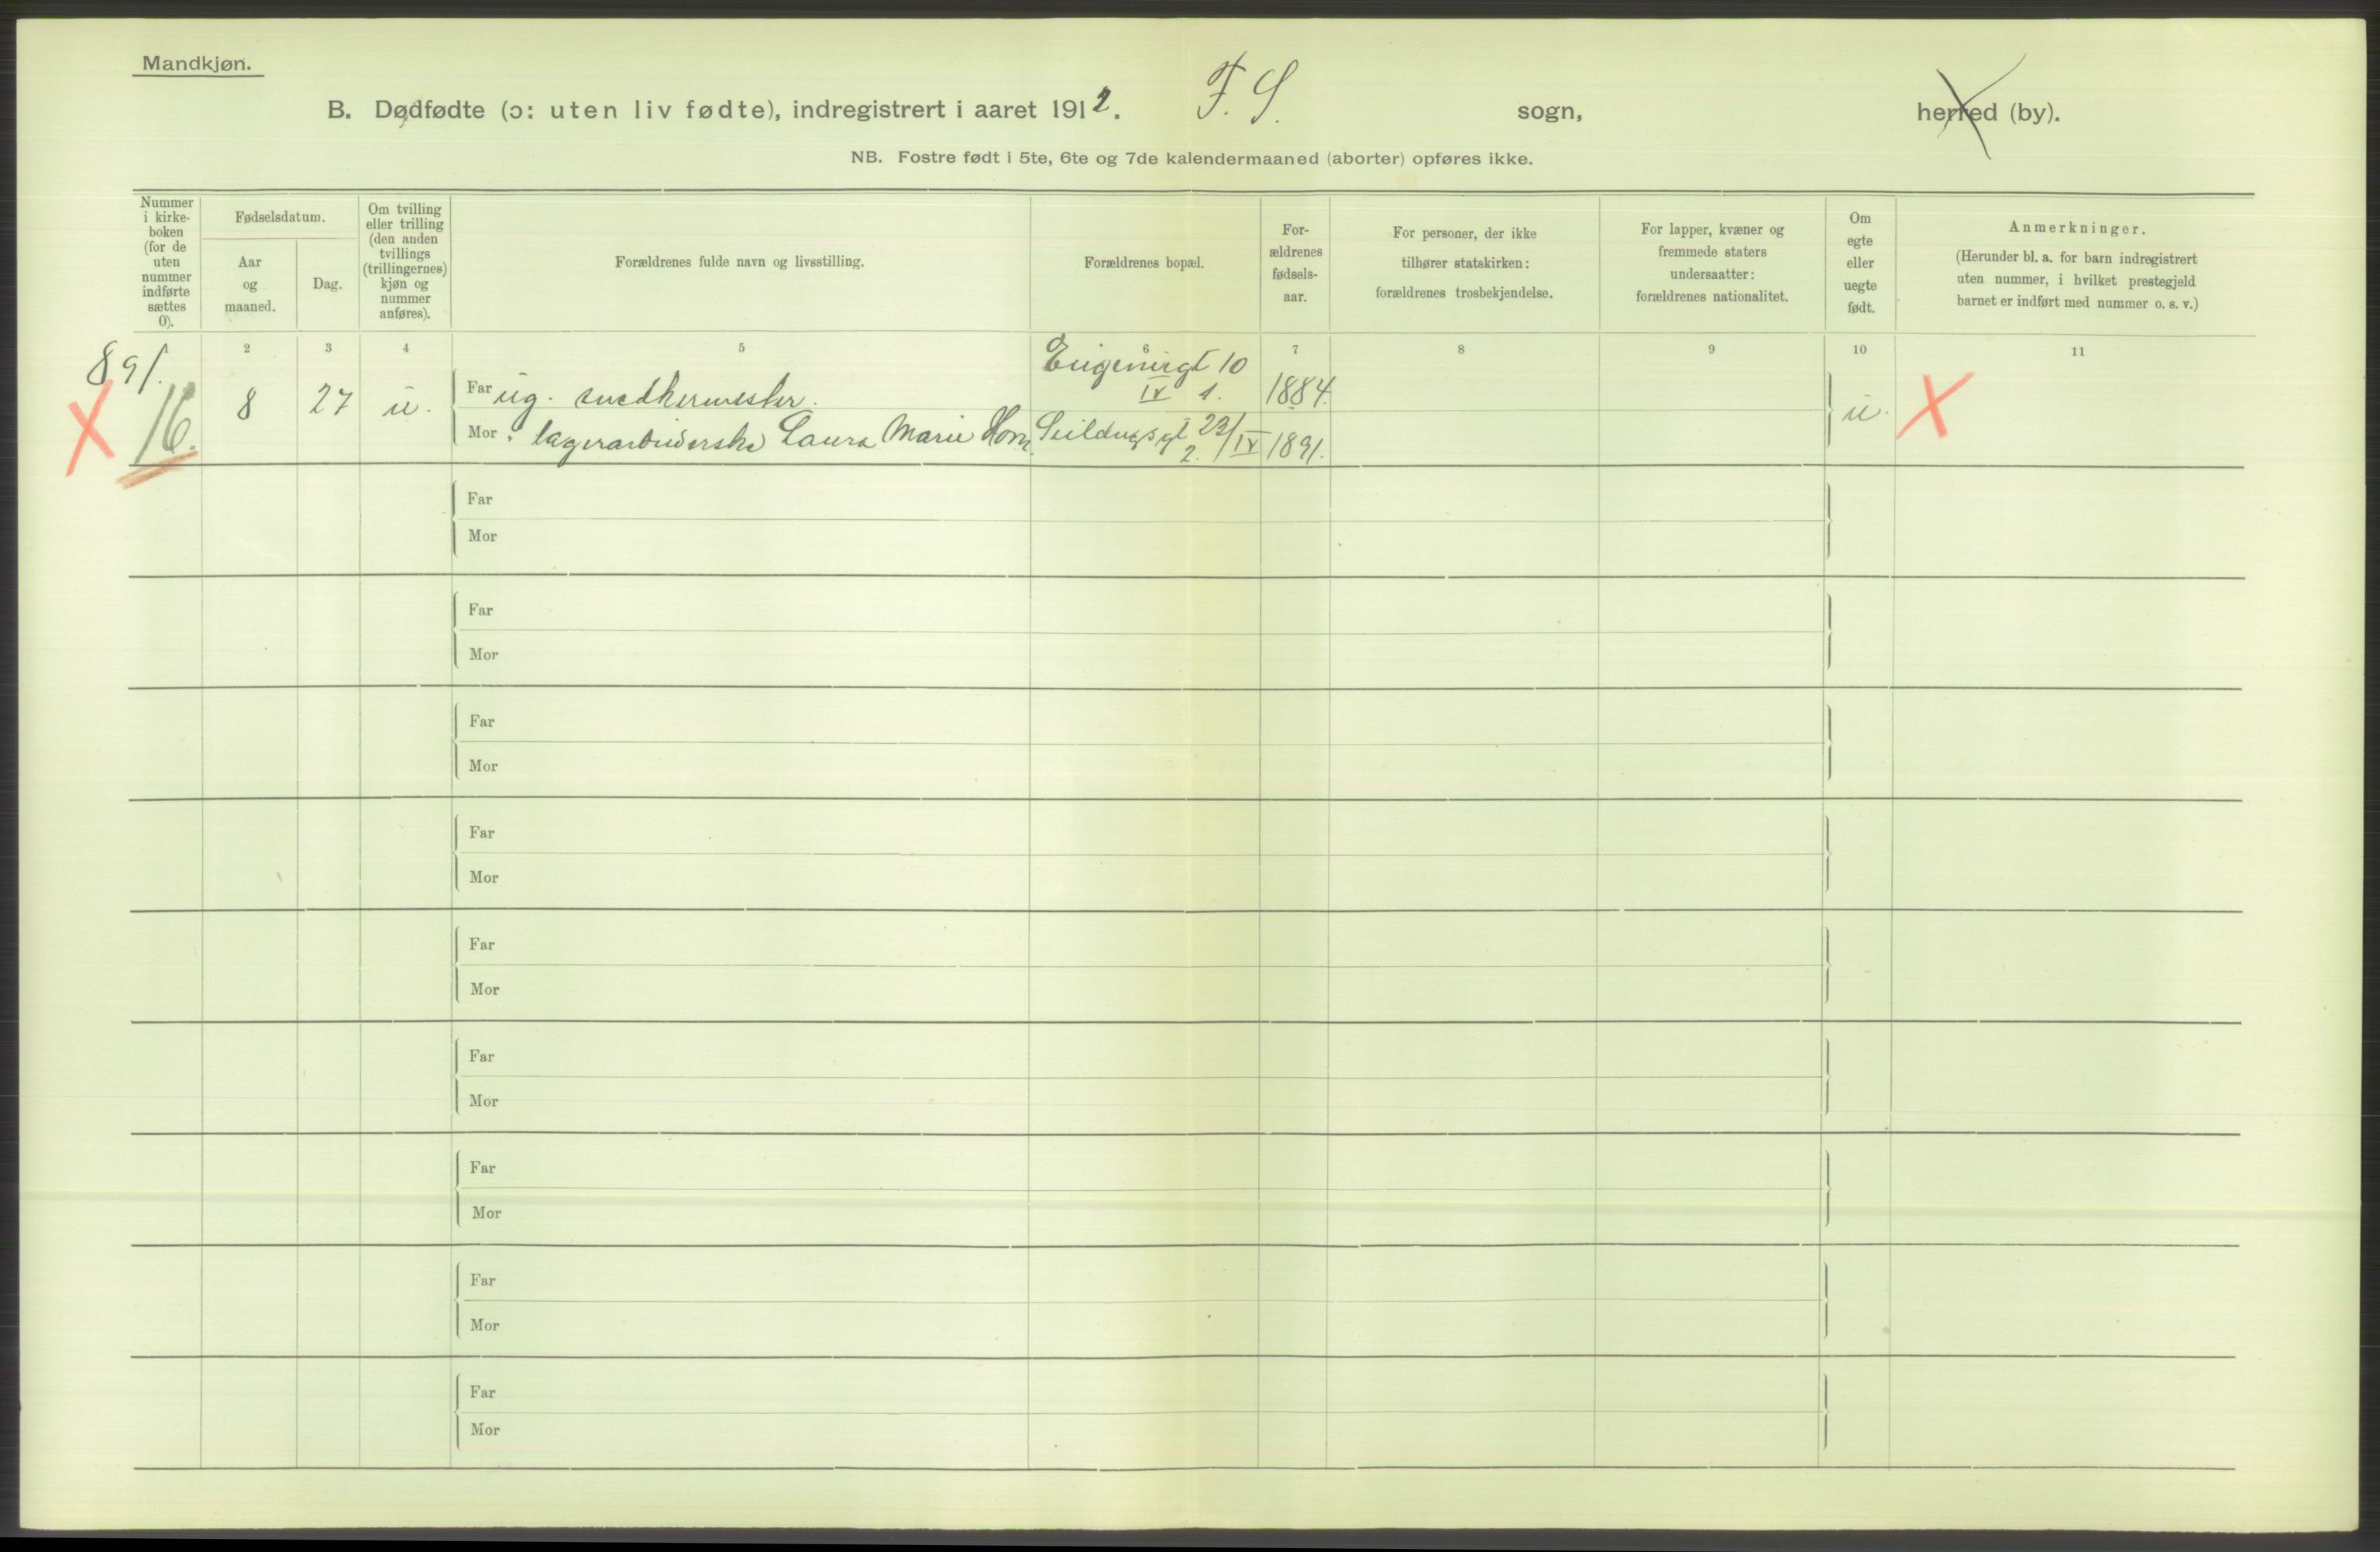 Mandkjøn.
B. Dødfødte (ɔ: uten liv fødte), indregistrert i aaret 1912. F. S. sogn, herred (by).
NB. Fostre født i 5te, 6te og 7de kalendermaaned (aborter) opføres ikke.
Nummer
i kirke-
boken
(for de
uten
nummer
indførte
sættes
0).
Fødselsdatum.
Aar
og
maaned.
Dag.
Om tvilling
eller trilling
(den anden
tvillings
(trillingernes)
kjøn og
nummer
anføres).
Forældrenes fulde navn og livsstilling.
Forældrenes bopæl.
For-
ældrenes
fødsels-
aar.
For personer, der ikke
tilhører statskirken:
forældrenes trosbekjendelse.
For lapper, kvæner og
fremmede staters
undersaatter:
forældrenes nationalitet.
Om
egte
eller
uegte
født.
Anmerkninger.
(Herunder bl. a. for barn indregistrert
uten nummer, i hvilket prestegjeld
barnet er indført med nummer o. s. v.)
1 2 3 4 5 6 7 8 9 10 11
891.
16. 8 27 u.
Far ug. snedkermester. Eugeniegt 10 IV 1. 1884.
Mor lagerarbeiderske Laura Marie Seildugsgt 23/IV 2. 1891.
u.
Far
Mor
Far
Mor
Far
Mor
Far
Mor
Far
Mor
Far
Mor
Far
Mor
Far
Mor
Far
Mor